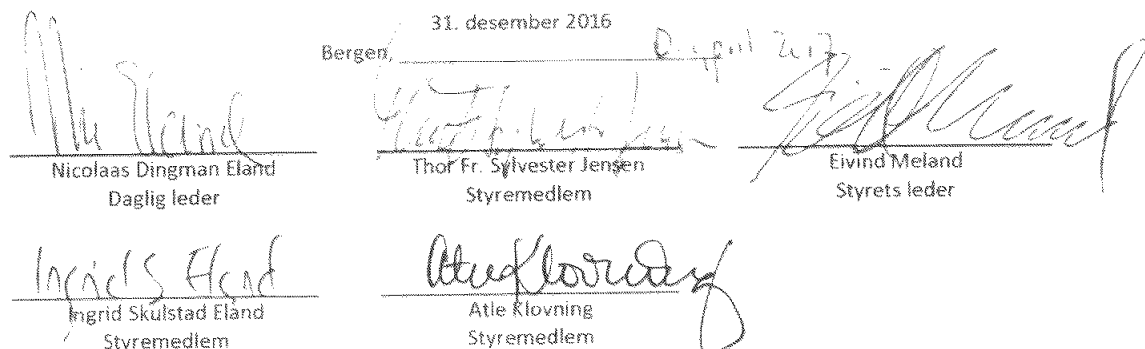 31. desember 2016
Bergen, april 2017
Nicolaas Dingman Eland
Daglig leder
Thor Fr. Sylvester Jensen
Styremedlem
Eivind Meland
Styrets leder
Ingrid S Eland
Ingrid Skulstad Eland
Styremedlem
Atle Klovning
Atle Klovning
Styremedlem